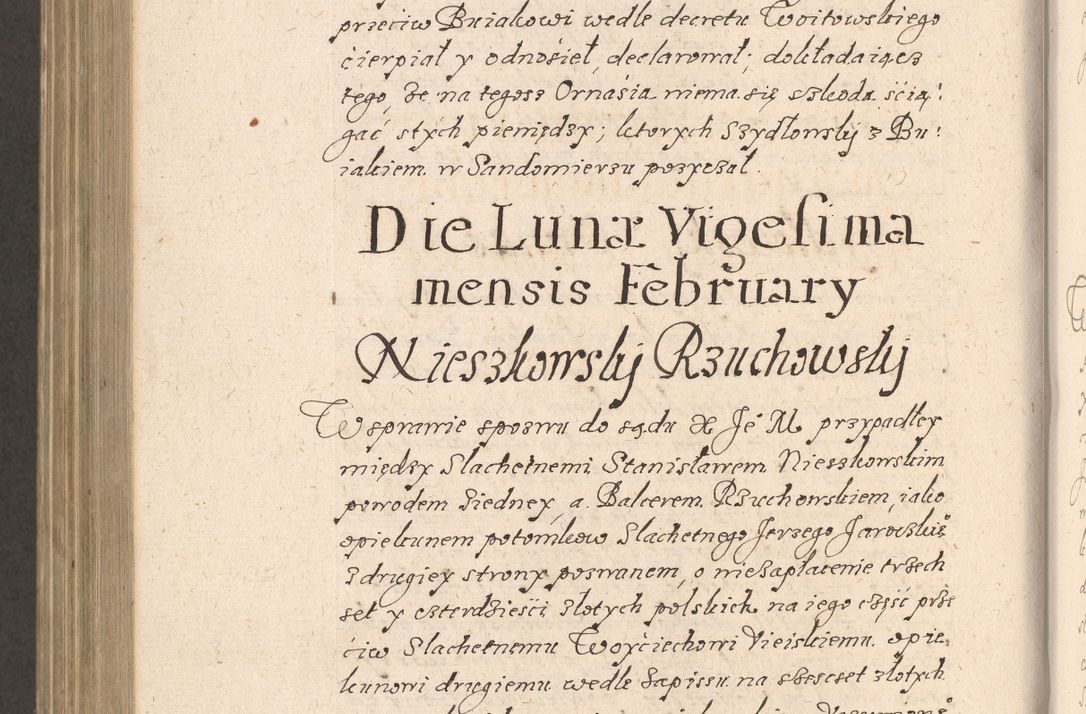 przeciw Buiakowi wedle decretu Woitowskiego
ćierpiał y odnośieł, declarował; dokładaiącz
tego że na tegosz Ornásia niema się szkoda śćią:
gać stych pieniędzy; ktorych Szydłowsky z Bu:
iakiem w Sandomierzu pozyczał.
Die Lunæ Vigesima
mensis February
Nieszkowskÿ Rzuchowskÿ
W sprawie spozwu do sądu X Je M przypadłey
między Slachetnemi Stanisławem Nieszkowskim
powodem ziedney, a Balcerem Rzuchowskiem, iako
opiekunem potomkow Slachetnego Jerzego
z drugiey strony pozwanem, o niezapłacenie trzech
set y czterdźieśći złotych polskich na iego część prze
ćiw Slachetnemu Woyćiechowi Vieiskiemu opie
kunowi drugiemu wedle zapissu na szescset złotych